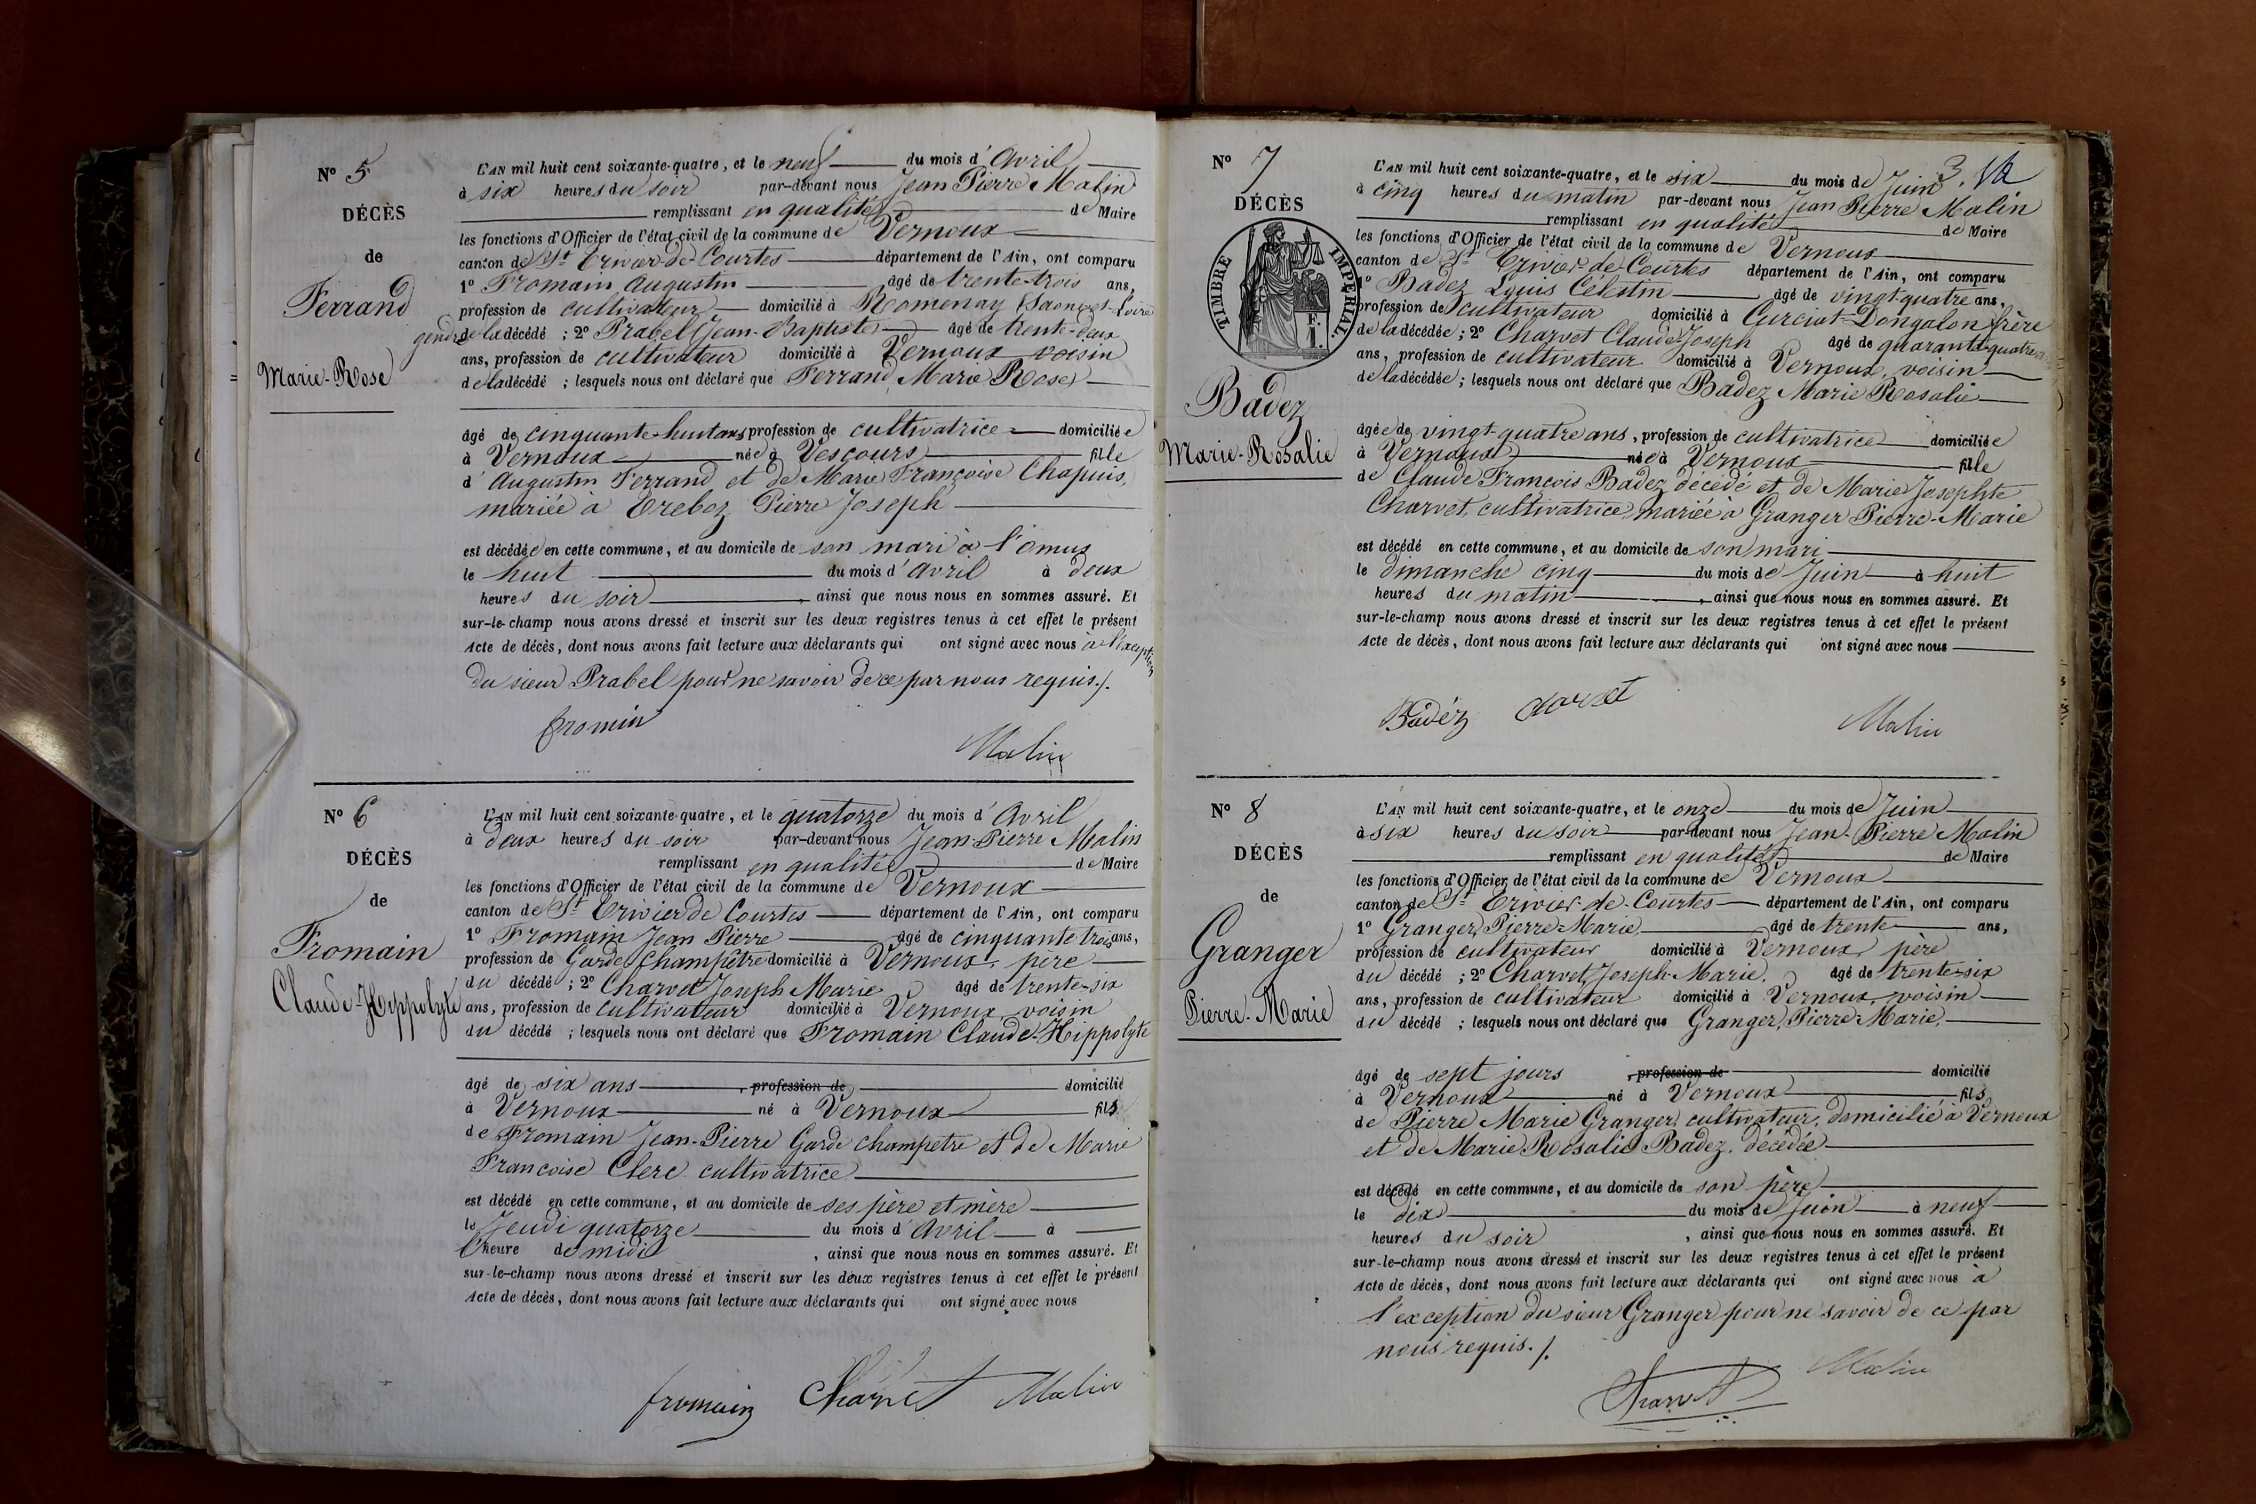 N° 5
DÉCÈS
de
Ferrand
Marie-Rose
L'AN mil huit cent soixante-quatre, et le neuf du mois d'Avril
à six heures du soir par-devant nous Jean Pierre Malin
remplissant en qualité de Maire
les fonctions d'Officier de l'état civil de la commune de Vernoux
canton de St Trivier-de-Courtes département de l'Ain, ont comparu
1° Fromain Augustin âgé de trente-trois ans,
profession de cultivateur domicilié à Romenay (Saone-et-Loire
gendre de la décédé ; 2° Prabel (Jean-Baptiste) âgé de trente-deux
ans, profession de cultivateur domicilié à Vernoux voisin
de la décédé ; lesquels nous ont déclaré que Ferrand Marie Rose
âgé de cinquante-huit ans profession de cultivatrice domiciliée
à Vernoux née à Vescours fille
d'Augustin Ferrand et de Marie Françoise Chapuis,
mariée à Treboz Pierre Joseph
est décédée en cette commune, et au domicile de son mari à l'omus
le huit du mois d'Avril à deux
heures du soir, ainsi que nous nous en sommes assuré. Et
sur-le-champ nous avons dressé et inscrit sur les deux registres tenus à cet effet le présent
Acte de décès, dont nous avons fait lecture aux déclarants qui ont signé avec nous à l'exception
du sieur Prabel pour ne savoir de ce par nous requis./.
fromain
Malin
N° 6
DÉCÈS
de
Fromain
Claude-Hippolyte
L'AN mil huit cent soixante-quatre, et le quatorze du mois d'Avril
à deux heures du soir par-devant nous Jean-Pierre Malin
remplissant en qualité de Maire
les fonctions d'Officier de l'état civil de la commune de Vernoux
canton de St Trivier de Courtes département de l'Ain, ont comparu
1° Fromain Jean Pierre âgé de cinquante trois ans,
profession de Garde Champêtre domicilié à Vernoux, père
du décédé ; 2° Charvet Joseph Marie âgé de trente-six
ans, profession de cultivateur domicilié à Vernoux voisin
du décédé ; lesquels nous ont déclaré que Fromain Claude-Hippolyte
âgé de six ans, profession de domicilié
à Vernoux né à Vernoux fils
de Fromain Jean-Pierre Garde champetre et de Marie
Francoise Clerc cultivatrice
est décédé en cette commune, et au domicile de ses père et mère
le Jeudi quatorze du mois d'Avril à
l'heure de midi, ainsi que nous nous en sommes assuré. Et
sur-le-champ nous avons dressé et inscrit sur les deux registres tenus à cet effet le présent
Acte de décès, dont nous avons fait lecture aux déclarants qui ont signé avec nous
fromain Charvet Malin
3.
N° 7
DÉCÈS
TIMBRE IMPÉRIAL.
Badez
Marie-Rosalie
L'AN mil huit cent soixante-quatre, et le six du mois de Juin
à cinq heures du matin par-devant nous Jean Pierre Malin
remplissant en qualité de Maire
les fonctions d'Officier de l'état civil de la commune de Vernoux
canton de St Trivier-de-Courtes département de l'Ain, ont comparu
1° Badez Louis Célestin âgé de vingt-quatre ans,
profession de cultivateur domicilié à Curciat-Dongalon frère
de la décédée ; 2° Charvet Claude Joseph âgé de quarante-quatre
ans, profession de cultivateur domicilié à Vernoux, voisin
de la décédée ; lesquels nous ont déclaré que Badez Marie Rosalie
âgée de vingt-quatre ans, profession de cultivatrice domiciliée
à Vernoux née à Vernoux fille
de Claude François Badez décédé et de Marie Josephte
Charvet, cultivatrice, mariée à Granger Pierre-Marie
est décédé en cette commune, et au domicile de son mari
le dimanche cinq du mois de Juin à huit
heures du matin, ainsi que nous nous en sommes assuré. Et
sur-le-champ nous avons dressé et inscrit sur les deux registres tenus à cet effet le présent
Acte de décès, dont nous avons fait lecture aux déclarants qui ont signé avec nous
Badéz Malin
N° 8
DÉCÈS
de
Granger
Pierre-Marie
L'AN mil huit cent soixante-quatre, et le onze du mois de Juin
à six heures du soir par-devant nous Jean-Pierre Malin
remplissant en qualité de Maire
les fonctions d'Officier de l'état civil de la commune de Vernoux
canton de St Trivier-de-Courtes département de l'Ain, ont comparu
1° Granger Pierre Marie âgé de trente ans,
profession de cultivateur domicilié à Vernoux, père
du décédé ; 2° Charvet, Joseph-Marie, âgé de trente-six
ans, profession de cultivateur domicilié à Vernoux, voisin
du décédé ; lesquels nous ont déclaré que Granger, Pierre-Marie,
âgé de sept jours, profession de domicilié
à Vernoux né à Vernoux fils
de Pierre Marie Granger, cultivateur, domicilié à Vernoux
et de Marie Rosalie Badez, décédée
est décédé en cette commune, et au domicile de son père
le dix du mois de Juin à neuf
heures du soir, ainsi que nous nous en sommes assuré. Et
sur-le-champ nous avons dressé et inscrit sur les deux registres tenus à cet effet le présent
Acte de décès, dont nous avons fait lecture aux déclarants qui ont signé avec nous à
l'exception du sieur Granger pour ne savoir de ce par
nous requis./.
Charvet Malin